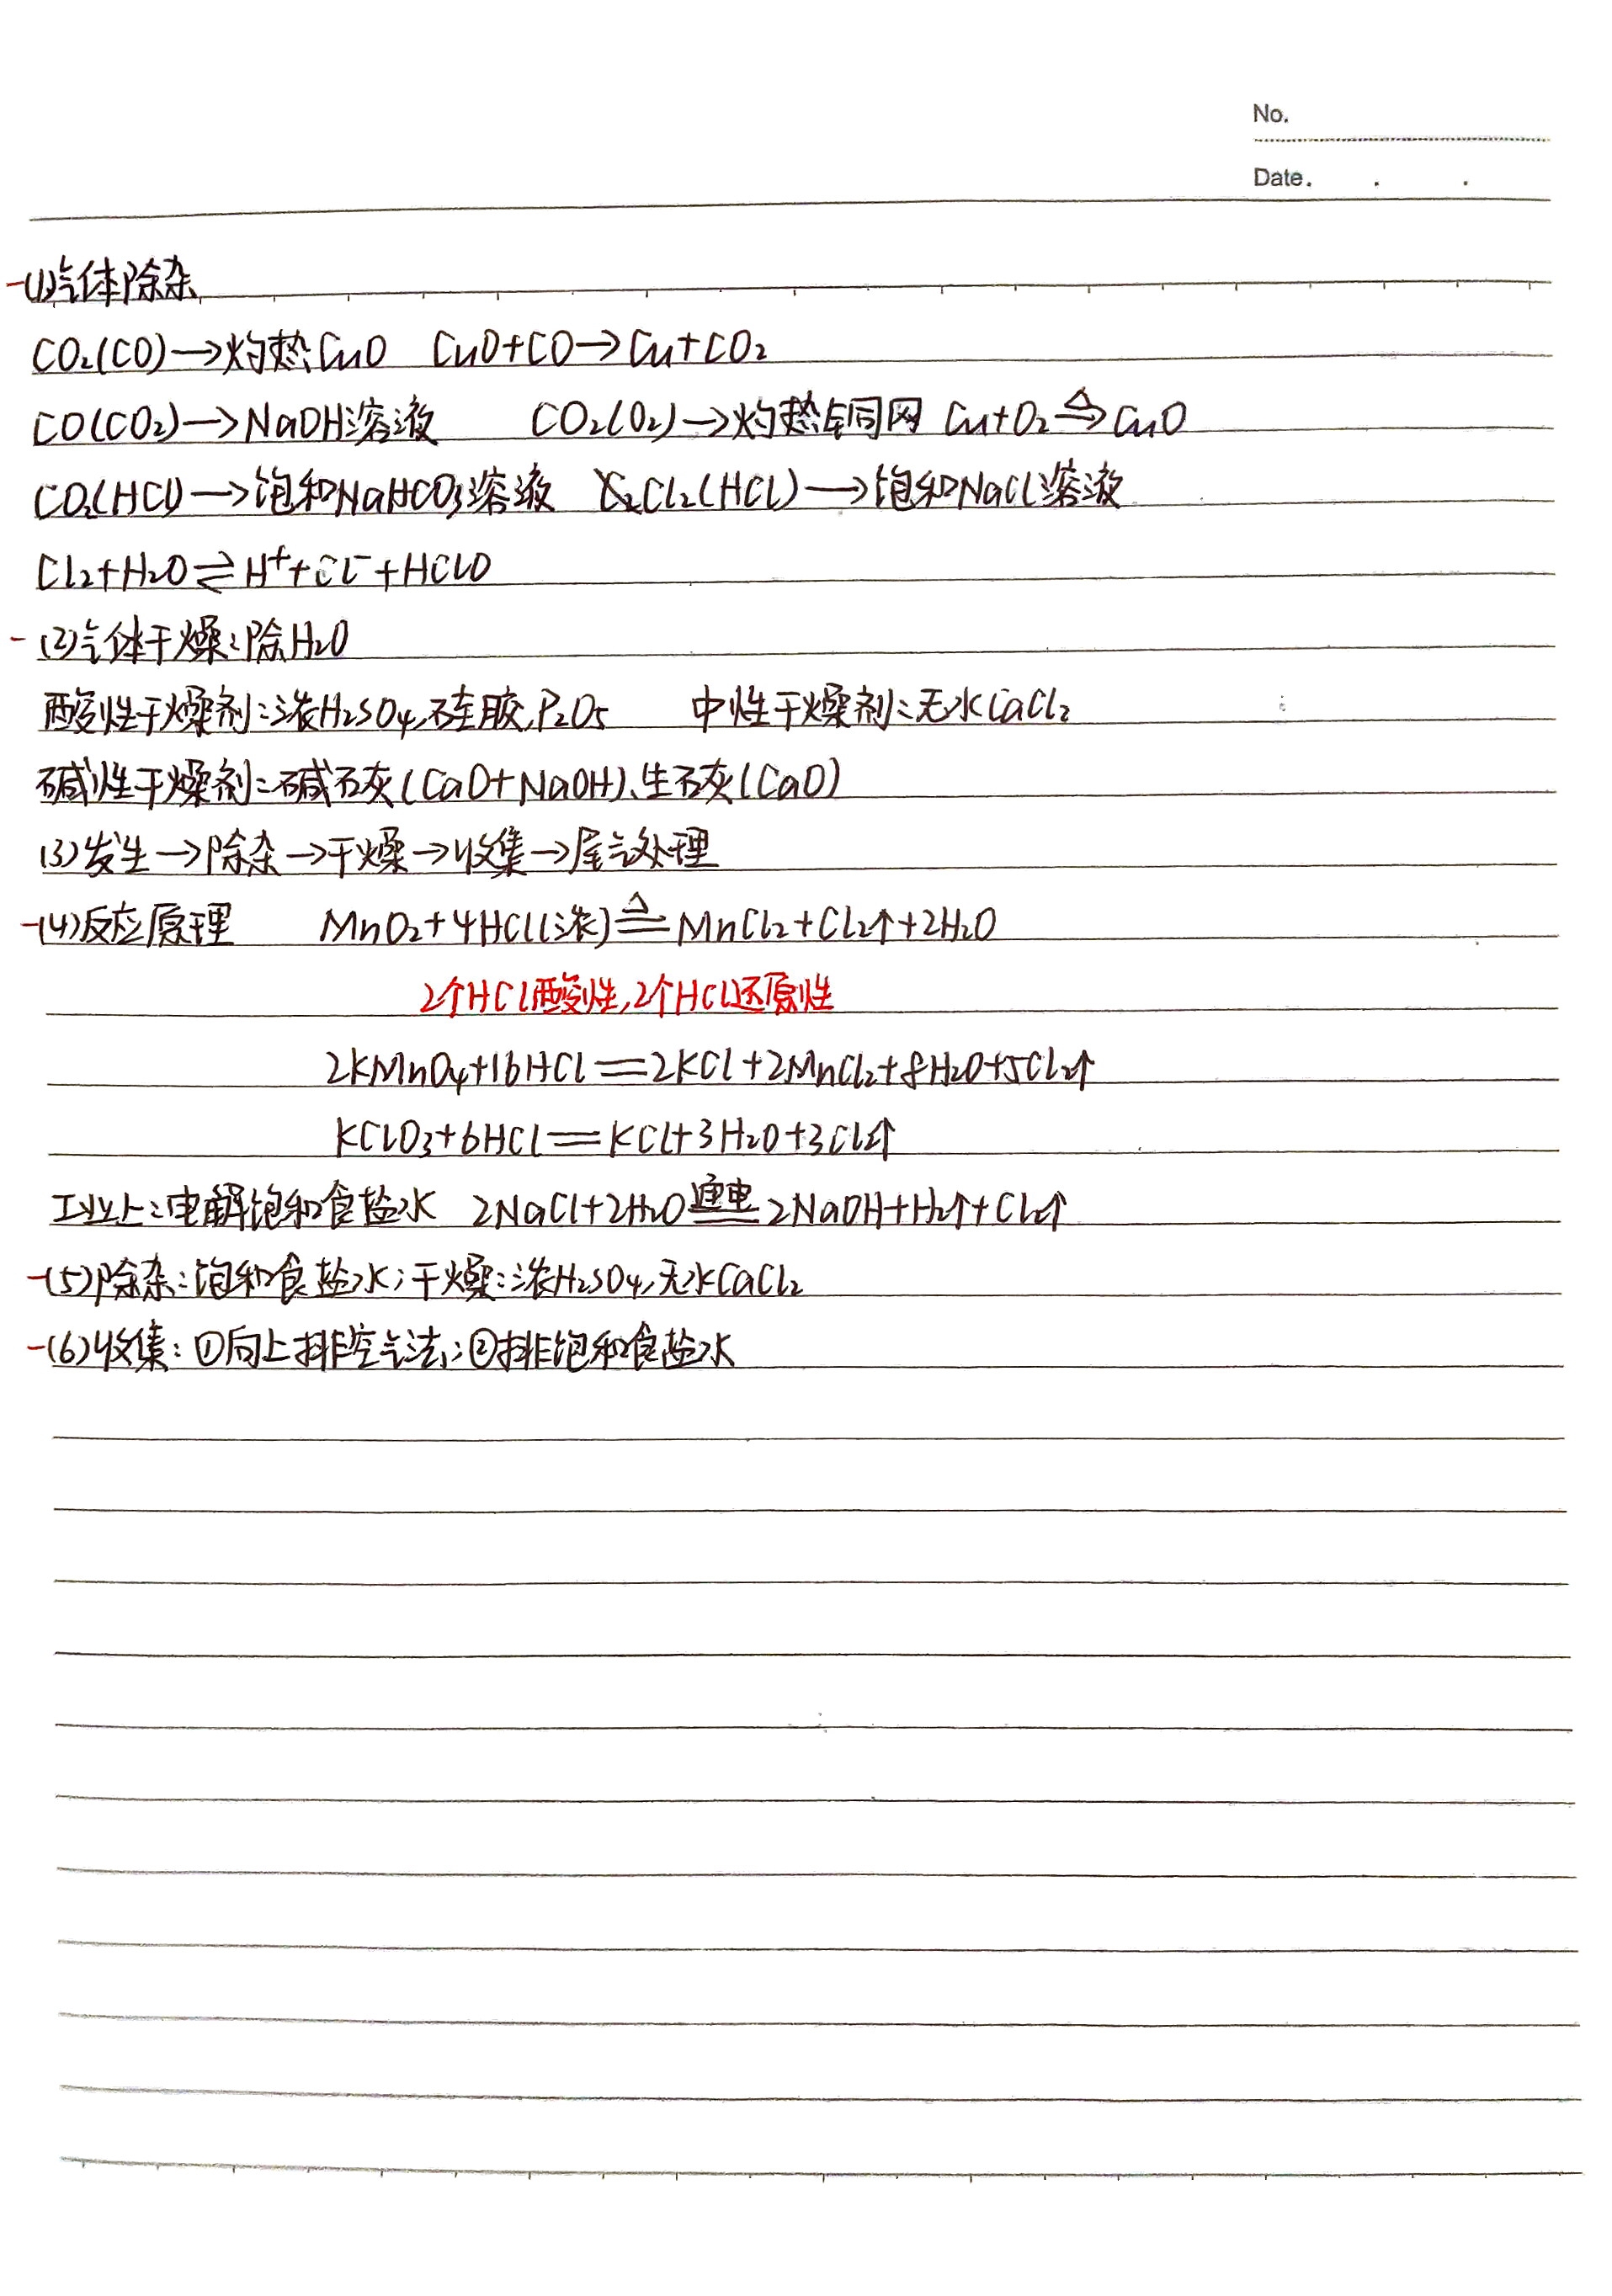 No.
Date. . .
(1)气体除杂
CO₂(CO)→灼热CuO CuO+CO→Cu+CO₂
CO(CO₂)→NaOH溶液 CO₂(O₂)→灼热铜网 Cu+O₂≜>CuO
CO₂(HCl)→饱和NaHCO₃溶液 Cl₂(HCl)→饱和NaCl溶液
Cl₂+H₂O⇌H⁺+Cl⁻+HClO
(2)气体干燥:除H₂O
酸性干燥剂:浓H₂SO₄,硅胶,P₂O₅ 中性干燥剂:无水CaCl₂
碱性干燥剂:碱石灰(CaO+NaOH)、生石灰(CaO)
(3)发生→除杂→干燥→收集→尾气处理
(4)反应原理 MnO₂+4HCl(浓)≜MnCl₂+Cl₂↑+2H₂O
2个HCl酸性,2个HCl还原性
2KMnO₄+16HCl=2KCl+2MnCl₂+8H₂O+5Cl₂↑
KClO₃+6HCl=KCl+3H₂O+3Cl₂↑
工业上:电解饱和食盐水 2NaCl+2H₂O 通电═ 2NaOH+H₂↑+Cl₂↑
(5)除杂:饱和食盐水;干燥:浓H₂SO₄,无水CaCl₂
(6)收集:①向上排空气法;②排饱和食盐水